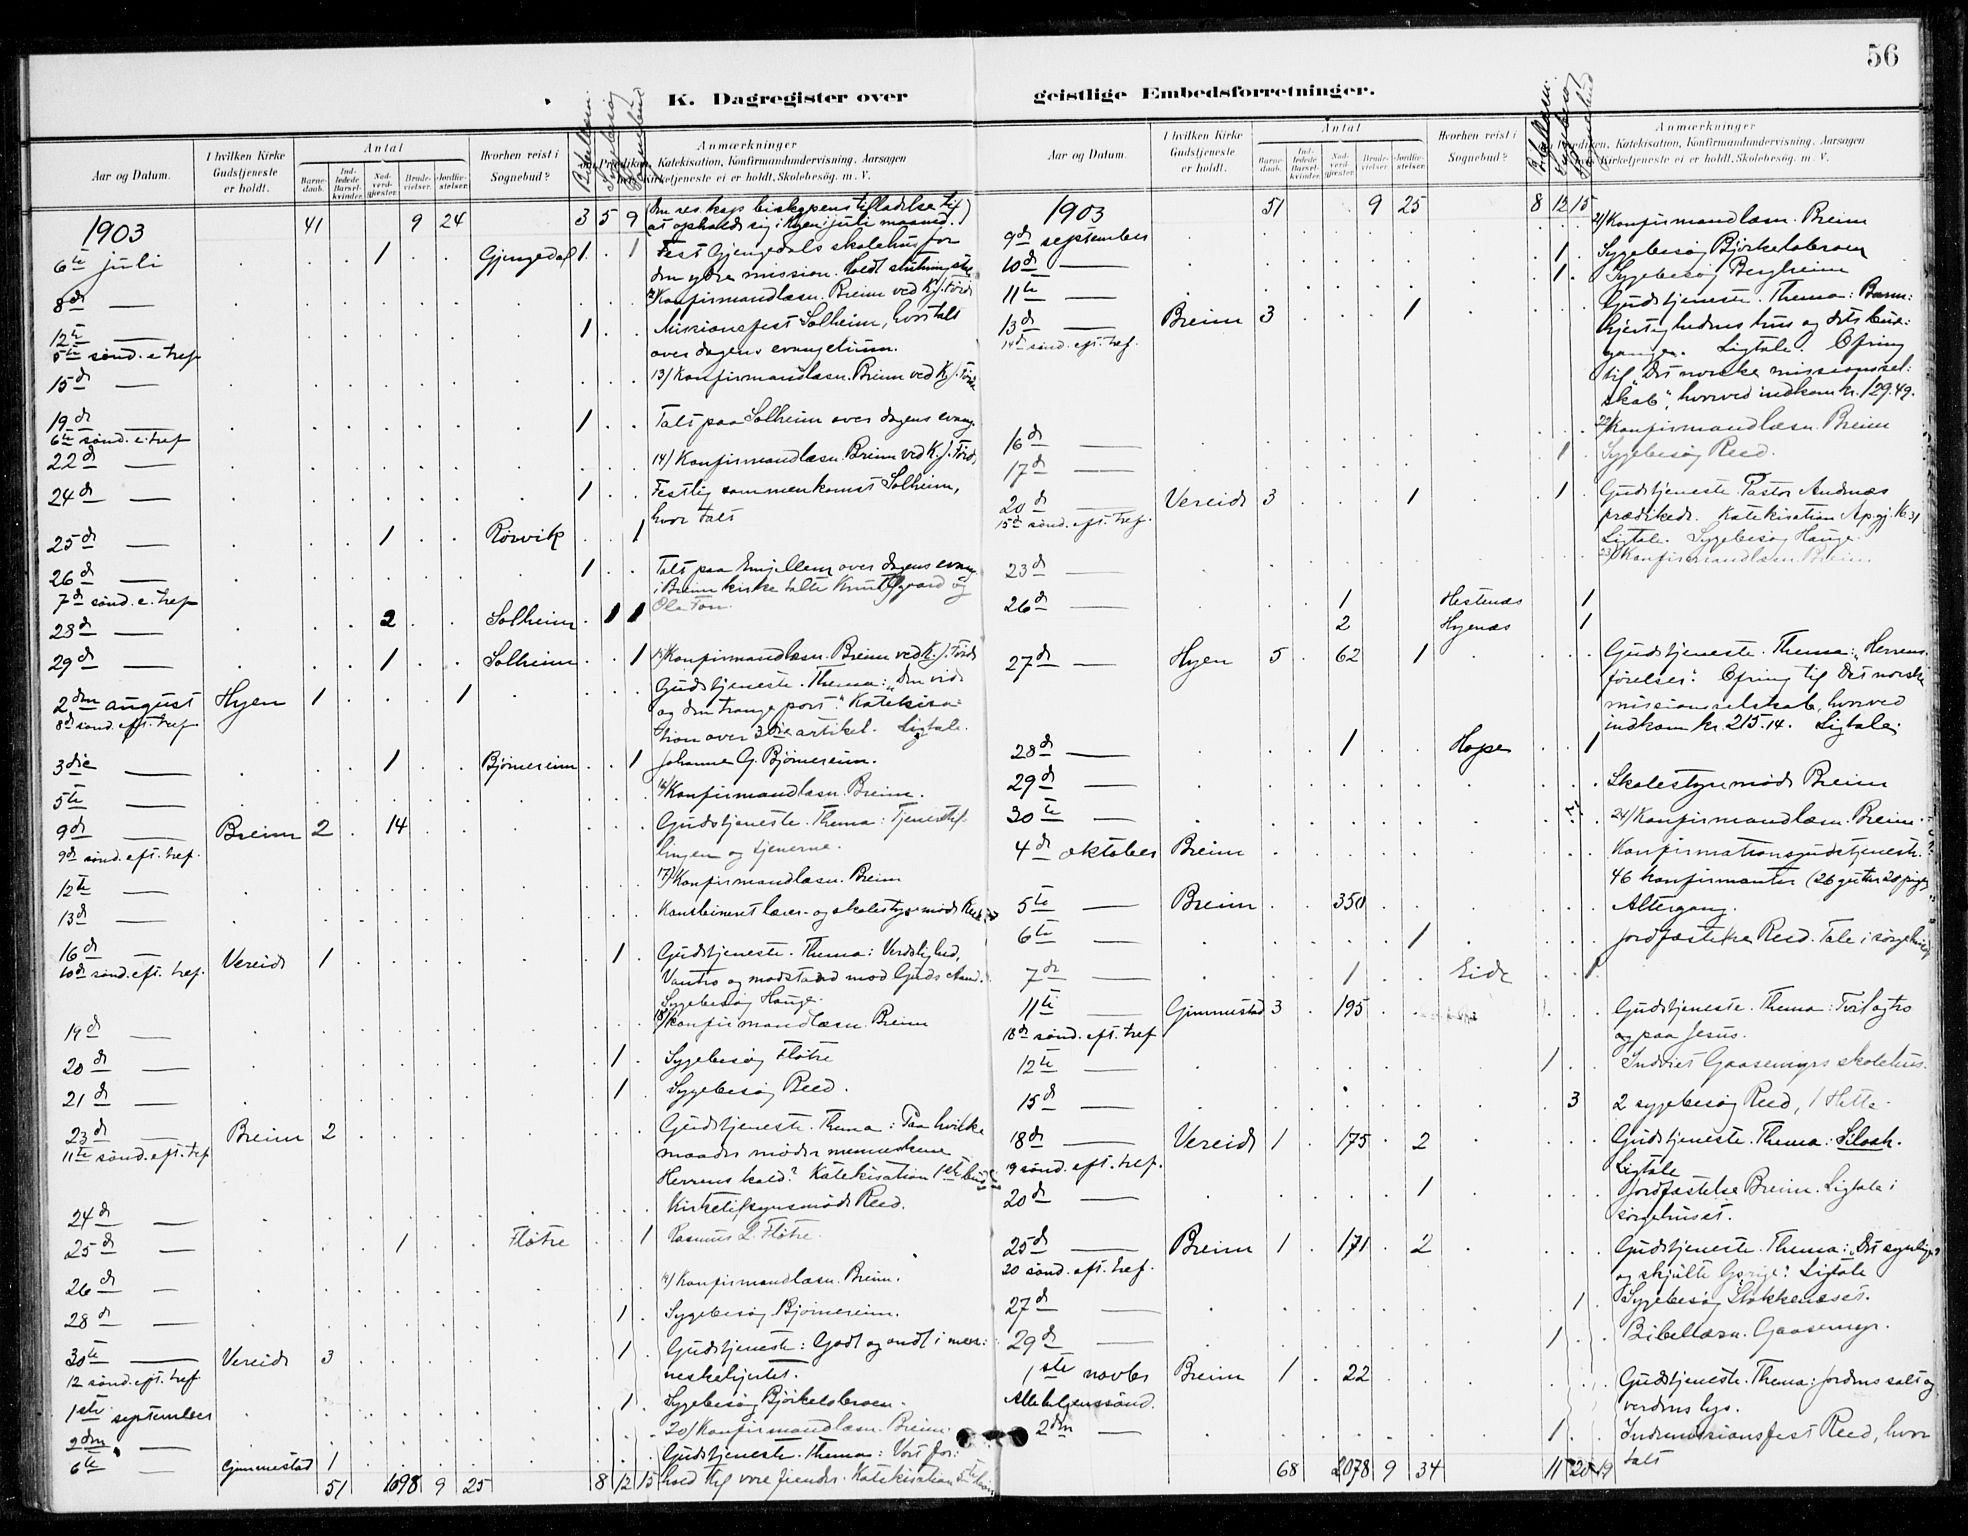 56
K. Dagregister over geistlige Embedsforretninger.
Aar og Datum.
I hvilken Kirke Gudstjeneste er holdt.
Antal
Barnedaab.
Indledede Barselkvinder.
Nadverdgjester.
Brudevielser.
Jordfæstelser.
Hvorhen reist i Sognebud?
Anmærkninger
Katekisation, Konfirmandundervisning. Aarsagen
Kirketjeneste ei er holdt. Skolebesøg. m. V.
1903 41 9 24 3 5 9 biskopens tilladelse til
at opholde sig i Hyen juli maaned.
6te juli 1 Gjengedal 1 1 Fest Gjengedals skolehus for
den ydre mission. Holdt
8de — Konfirmandlæsn. Breim ved K.
12te — 1 Missionsfest Solheim, hvor talt
5te sønd. e. tref over dagens evangelium.
15de — 13/ Konfirmandlæsn. Breim ved K.
19de 1 Talt paa Solheim over dagens evang.
6te sønd. e. tref
22de — 14/ Konfirmandlæsn. Breim ved K.
24de — 1 Festlig sammenkomst Solheim,
hvor talt
25de — 1 Rørvik 1
26de — 1 Talt paa over dagens evang
7de sønd. e. tref i Breim kirke talte Knut og
28de — 2 Solheim 1 1
29de — 1 Solheim 1 Konfirmandlæsn. Breim ved K.
2den august Hyen 1 1 Gudstjeneste. Thema: "Den vide
8de sønd. eft. tref og den trange port". Katekisa-
tion over 3die artikel. Ligtale.
3die — 1 Bjørnereim 1 Johanne G. Bjørnereim.
5te — 16/ Konfirmandlæsn. Breim.
9de — Breim 2 14 Gudstjeneste. Thema:
9de sønd. eft. tref. og tjenerne.
12te — 17/ Konfirmandlæsn. Breim
13de — Kombineret lærer- og skolestyremøde
16de — Vereide 1 1 Gudstjeneste. Thema: Verdslighed,
10de sønd. eft. tref. Vantro og modstand mod Guds Aand.
Sygebesøg Hauge.
19de 18/ Konfirmandlæsn. Breim
20de — 1 Sygebesøg Fløtre
21de — 1 Sygebesøg Reed.
23de — Breim 2 Gudstjeneste. Thema: Paa hvilke
11te sønd. eft. tref maader møder menneskene
Herrens kald? Katekisation 1ste bud
24de — Kirketilsynsmøde Reed.
25de — 1 Fløtre 1 Rasmus L. Fløtre.
26de — 19/ Konfirmandlæsn. Breim.
28de — 1 Sygebesøg Bjørnereim.
30te — Vereide 3 1 Gudstjeneste: Godt og ondt i men-
12 sønd. eft. tref neskehjertet.
1ste september 1 Sygebesøg Bjørkelobroen.
2den — 20/ Konfirmandlæsn. Breim.
6te — Gimmestad 1 Gudstjeneste. Thema: Vort for-
51 1698 9 25 8 12 15 hold til vore fiender. Katekisation 5te bøn
1903 51 9 25 8 12 15
9de september 21/ Konfirmandlæsn. Breim
10de — 1 Sygebesøg Bjørkelobroen
11te — 1 Sygebesøg Bergheim
13de — Breim 3 1 Gudstjeneste. Thema: Barm-
14de sønd. eft. tref. hjertighedens hus og dets
Ligtale. Ofring
til "Det norske missionssel-
skab", hvorved indkom kr. 129.49.
16de — 22/ Konfirmandlæsn. Breim
17de — 1 Sygebesøg Reed.
20de — Vereide 3 1 1 Gudstjeneste. Pastor Andnæs
15de sønd. eft. tref. prædikede. Katekisation Ap.gj.
Ligtale. Sygebesøg Hauge.
23de — 23/ Konfirmandlæsn. Breim.
26de — 1 Hestenæs 1
2 Hyenæs 1
27de — Hyen 5 62 1 Gudstjeneste. Thema: "Herrens
førelser". Ofring til Det norske
missionsselskab, hvorved
indkom kr. 215.14. Ligtale.
28de — 1 Hope 1
29de — Skolestyremøde Breim
30te — 24/ Konfirmandlæsn. Breim.
4de oktober Breim Konfirmationsgudstjeneste.
46 konfirmanter (26 gutter 20 piger)
5te — Breim 350 Altergang.
6te — 1 Jordfæstelse Reed. Tale i sørgehuset
7de — 1 Eide 1
11te — Gimmestad 3 195 Gudstjeneste. Thema:
18de sønd. eft. tref paa Jesus.
12te — 1 Indviet Gaasemyrs skolehus.
15de — 3 2 sygebesøg Reed, 1 Hetle.
18de — Vereide 1 175 2 Gudstjeneste. Thema: Siloah.
9 sønd. eft. tref. Ligtale
20de — 1 Jordfæstelse Breim. Ligtale i
sørgehuset.
25de — Breim 1 171 2 Gudstjeneste. Thema: "Det synlige
20 sønd. eft. tref. og skjulte Ligtale
27de — 1 Sygebesøg Stokkenæset.
29de — 1 Bibellæsn. Gaasemyr.
1ste novbr Breim 1 22 Gudstjeneste. Thema: Jordens salt og
Allehelgenssønd. verdens lys.
2den — 1 Indremissionsfest Reed, hvor
talt
68 2078 9 34 11 20 19